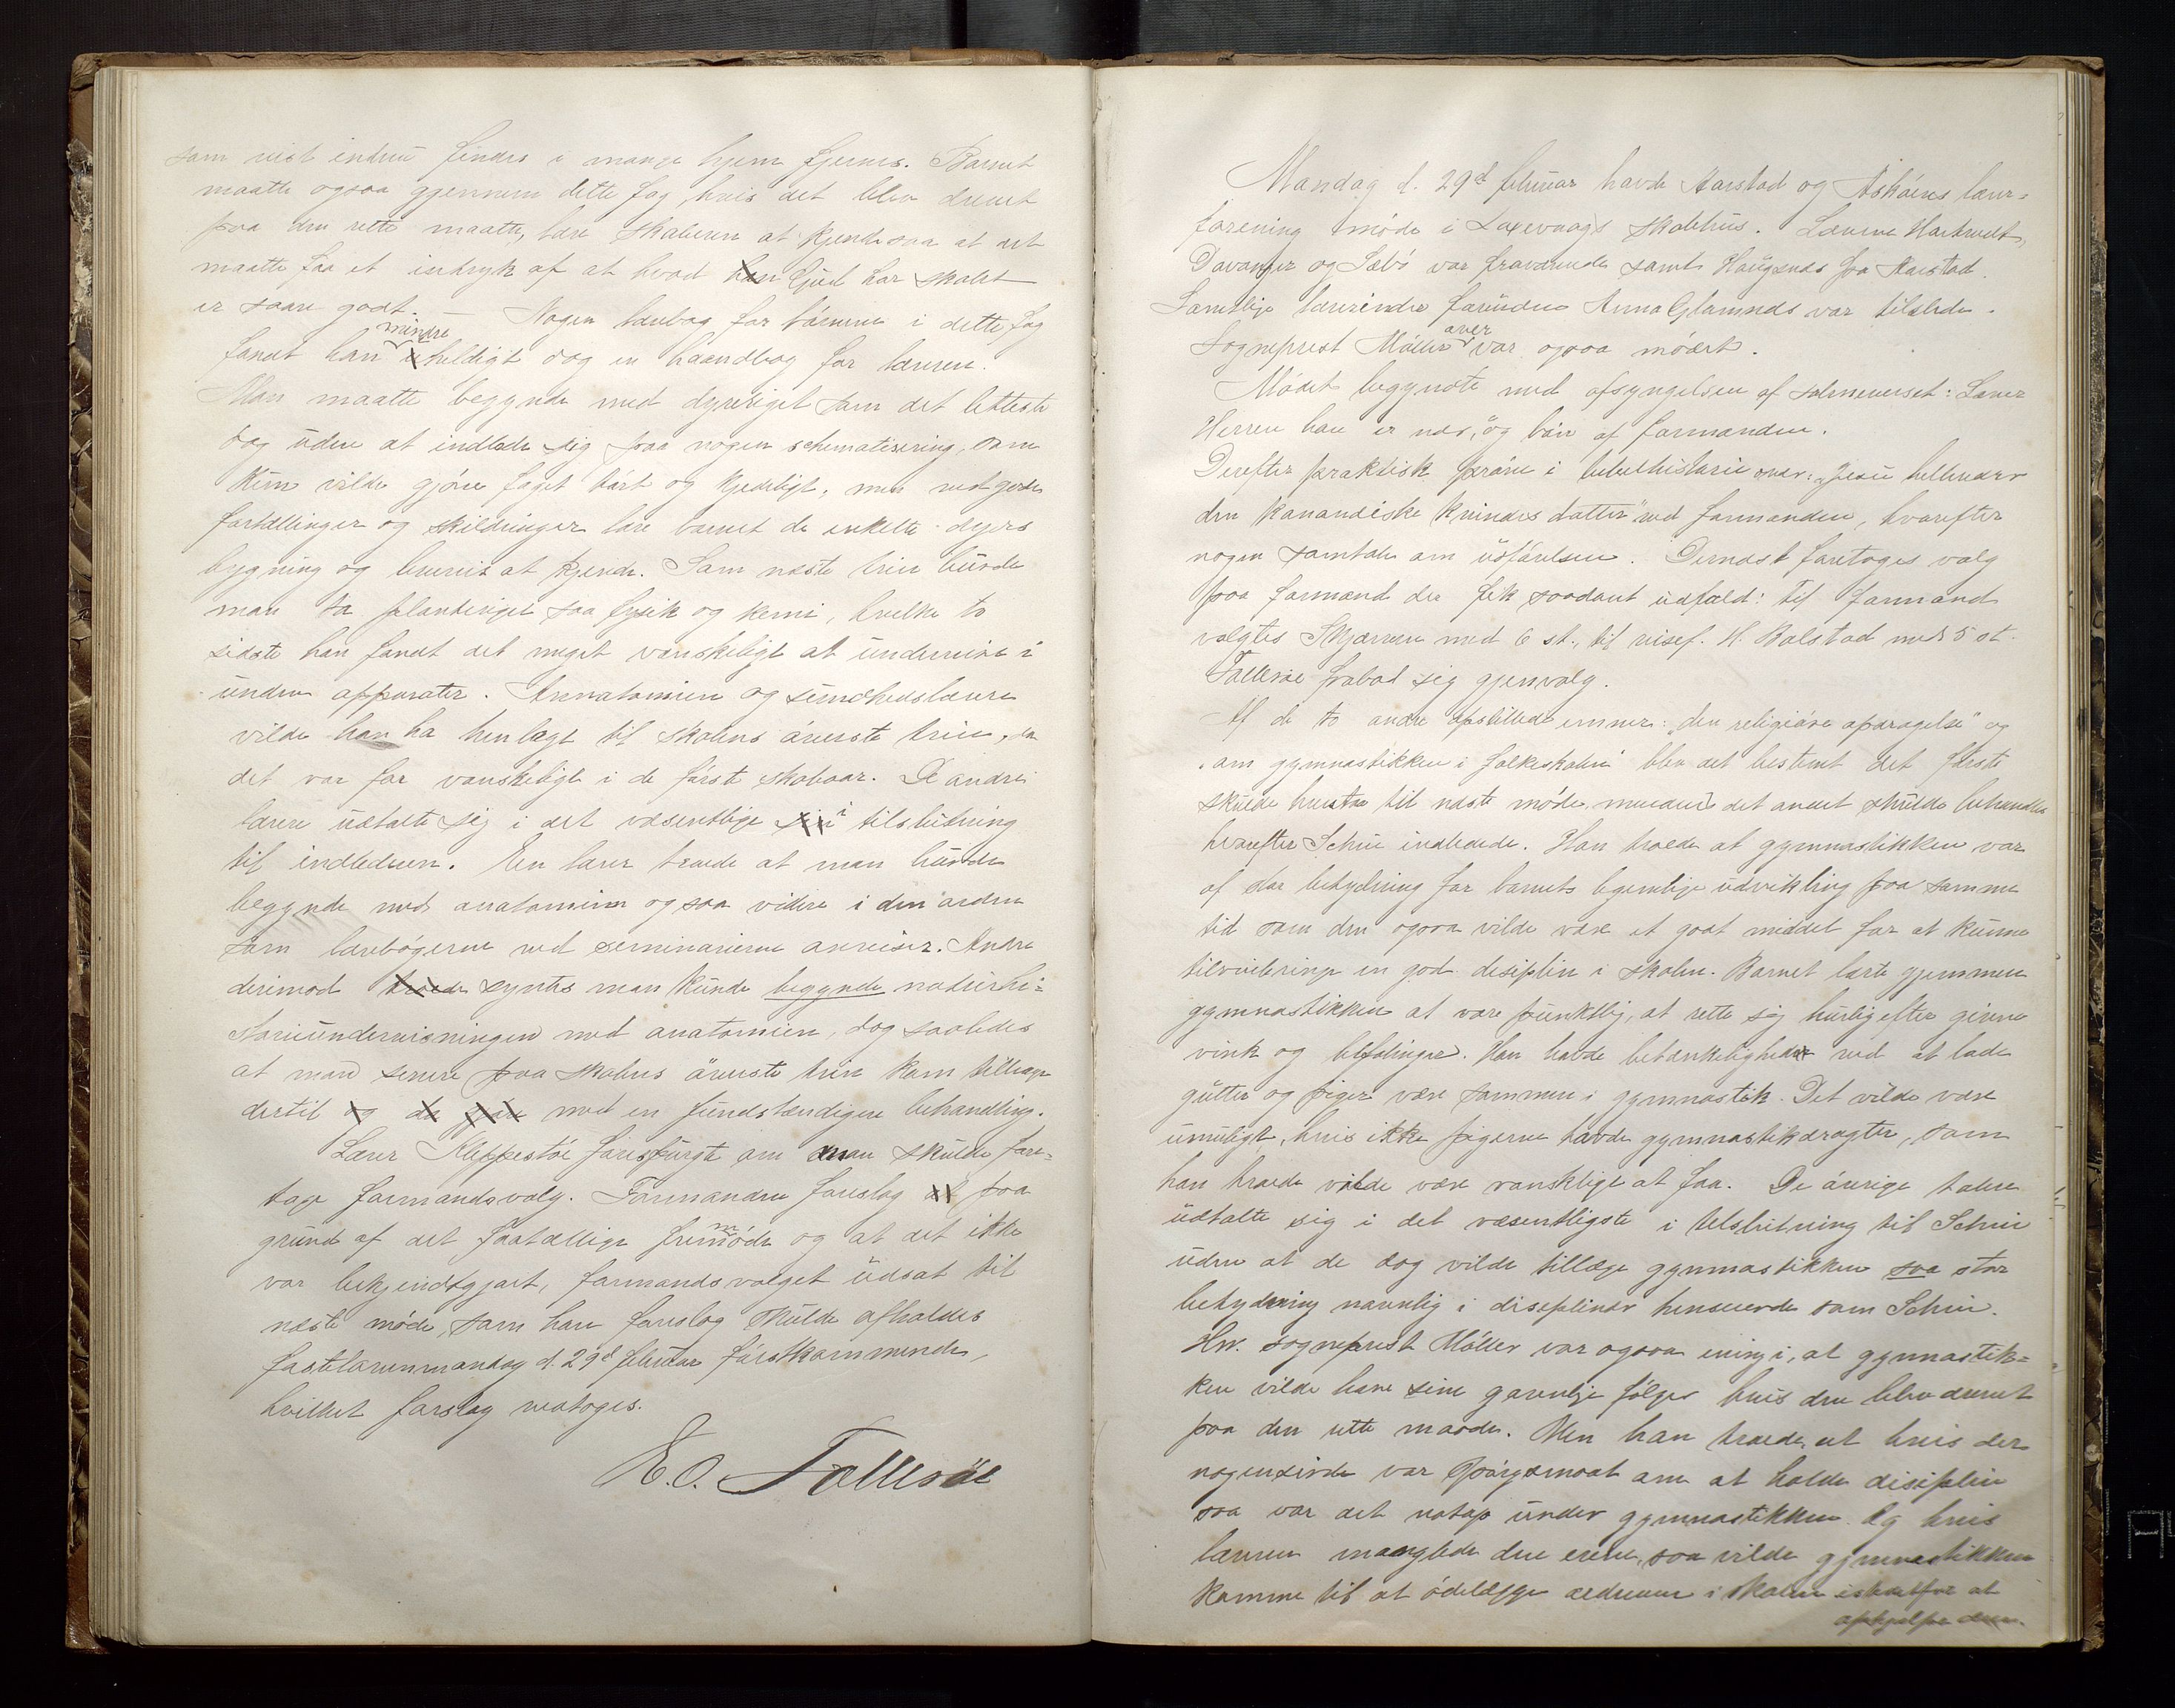 som vist endnu findes i mange hjem fjernes. Barnet
maatte ogsaa gjennem dette fag, hvis det blev drevet
paa den rette maatte, lære skaberen at kjende saa at det
maatte faa et indtryk af at hvad han Gud har skabt
er saare godt. — Nogen lærebog for børnene i dette fag
fandt han mindre heldigt dog en haandbog for læreren.
Man maatte begynde med dyreriget som det letteste
dog uden at indlade sig paa nogen schematisering, som
kun vilde gjøre faget tørt og kjedeligt, men ved gode
fortællinger og skildringer lære barnet de enkelte dyrs
bygning og levevis at kjende. Som næste trin burde
man ta planteriget saa fysik og kemi, hvilke to
sidste han fandt det meget vanskeligt at undervise i
uden apparater. Annatomien og sundhedslæren
vilde han ha henlagt til skolens øverste trin, da
det var for vanskeligt i de første skoleaar. De andre
lærere udtalte sig i det væsentlige i tilslutning
til indlederen. En lærer troede at man burde
begynde med anatomien og saa videre i den orden
som lærebøgerne ved seminarierne anviser. Andre
derimod troede syntes man kunde begynde naturhi=
storieundervisningen med anatomien, dog saaledes
at man senere paa skolens øverste trin kom tilbage
dertil og da med en fuldstændigere behandling.
Lærer Kleppestøe forespurgte om man skulde fore=
tage formandsvalg. Formanden foreslog at paa
grund af det faatallige fremmøde og at det ikke
var bekjendtgjort, formandsvalget udsat til
næste møde, som han foreslog skulde afholdes
fastelavnmandag d. 29d februar førstkommende,
hvilket forslag vedtoges.
E. O. Tollesøe
Mandag d. 29d februar havde Aarstad og Askøens lærer=
forening møde i Laxevaags skolehus. Lærerne Harkvedt,
Davanger og Sæbø var fraværende samt Haugsnes fra Aarstad.
Samtlige lærerinder foruden Anna Glamnes var tilstede.
Sogneprest Møller over var ogsaa mødt.
Mødet begyndte med afsyngelsen af salmeverset: Lover
Herren han er nær," og bøn af formanden.
Derefter praktisk prøve i bibelhistorie over: "Jesus helbreder
den kananæiske kvindes datter" ved formanden, hvorefter
nogen samtale om udførelsen. Dernæst foretoges valg
paa formand der fik saadant udfald: til formand
valgtes Skjerven med 6 st., til visef. H. Bolstad med 5 st.
Tollesøe frabad sig gjenvalg.
Af de to andre opstillede emner: "den religiøse opdragelse" og
"om gymnastikken i folkeskolen" blev det bestemt det første
skulde hvile til næste møde medens det andet skulde behandles
hvorefter Schei indledede. Han troede at gymnastikken var
af stor betydning for barnets legemlige udvikling paa samme
tid som den ogsaa vilde være et godt middel for at kunne
tilveiebringe en god disiplin i skolen. Barnet lærte gjennem
gymnastikken at være punktlig, at rette sig hurtig efter givne
vink og befalinger. Han havde betænkeligheder ved at lade
gutter og piger være sammen i gymnastik. Det vilde være
umuligt, hvis ikke pigerne havde gymnastikdragter, som
han troede vilde være vanskelige at faa. De øvrige talere
udtalte sig i det væsentligste i tilslutning til Schei
uden at de dog vilde tillægge gymnastikken saa stor
betydning navnlig i disiplinær henseende som Schei.
Hr. sogneprest Møller var ogsaa enig i, at gymnastik=
ken vilde have sine gavnlige følger hvis den blev drevet
paa den rette maade. Men han troede, at hvis der
nogensinde var spørgsmaal om at holde disiplin
saa var det netop under gymnastikken. Og hvis
læreren manglede den evne, saa vilde gymnastikken
komme til at ødelægge ordenen i skolen istedetfor at
ophjelpe den.